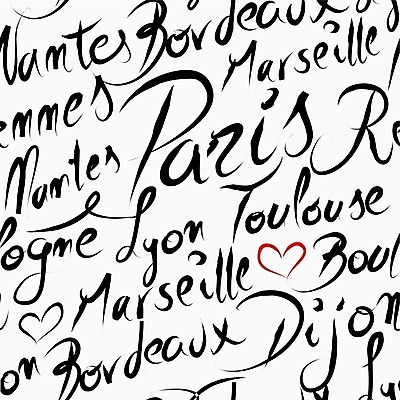 Nantes Bordeaux
Marseille
ennes Paris Re
Nantes
logne Lyon Toulouse
Marseille Boul
on Bordeaux Dijon
Ly